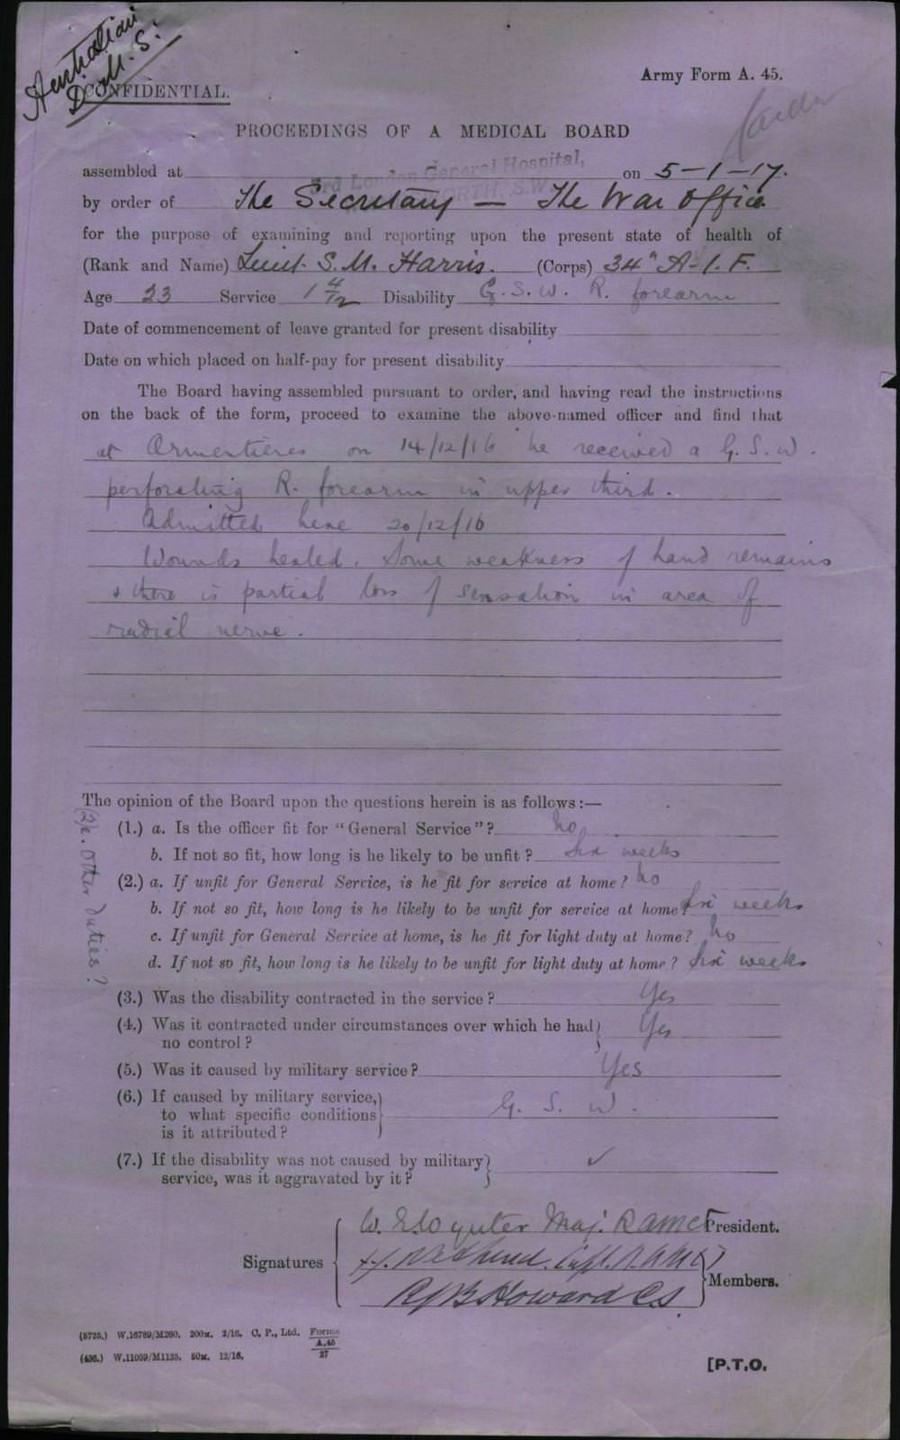 Australian
D.M.S.
CONFIDENTIAL.
Army Form A. 45.
PROCEEDINGS OF A MEDICAL BOARD
assembled at 3rd London General Hospital, on 5-1-17.
WANDSWORTH, S.W.
by order of The Secretary — The War Office
for the purpose of examining and reporting upon the present state of health of
(Rank and Name) Lieut. S. M. Harris. (Corps) 34th A.I.F.
Age 23 Service 1 4/12 Disability G. S. W. R. forearm
Date of commencement of leave granted for present disability
Date on which placed on half-pay for present disability
The Board having assembled pursuant to order, and having read the instructions
on the back of the form, proceed to examine the above-named officer and find that
at Armentieres on 14/12/16 he received a G. S. W.
perforating R. forearm in upper third.
Admitted here 20/12/16
Wounds healed. Some weakness of hand remains
& there is partial loss of sensation in area of
radial nerve.
The opinion of the Board upon the questions herein is as follows:—
(1.) a. Is the officer fit for "General Service"? No
b. If not so fit, how long is he likely to be unfit? Six weeks
(2.) a. If unfit for General Service, is he fit for service at home? No
b. If not so fit, how long is he likely to be unfit for service at home? Six weeks
c. If unfit for General Service at home, is he fit for light duty at home? No
d. If not so fit, how long is he likely to be unfit for light duty at home? Six weeks
Other duties?
(3.) Was the disability contracted in the service? Yes
(4.) Was it contracted under circumstances over which he had Yes
no control?
(5.) Was it caused by military service? Yes
(6.) If caused by military service,
to what specific conditions G. S. W.
is it attributed?
(7.) If the disability was not caused by military ✓
service, was it aggravated by it?
Maj. RAMC President.
Signatures Capt. R.A.M.C.
Members.
Howard
(5725.) W.16769/M260. 200M. 2/16. C. P., Ltd. Forms
A.45
(436.) W.11009/M1135. 50M. 12/16. 27
[P.T.O.